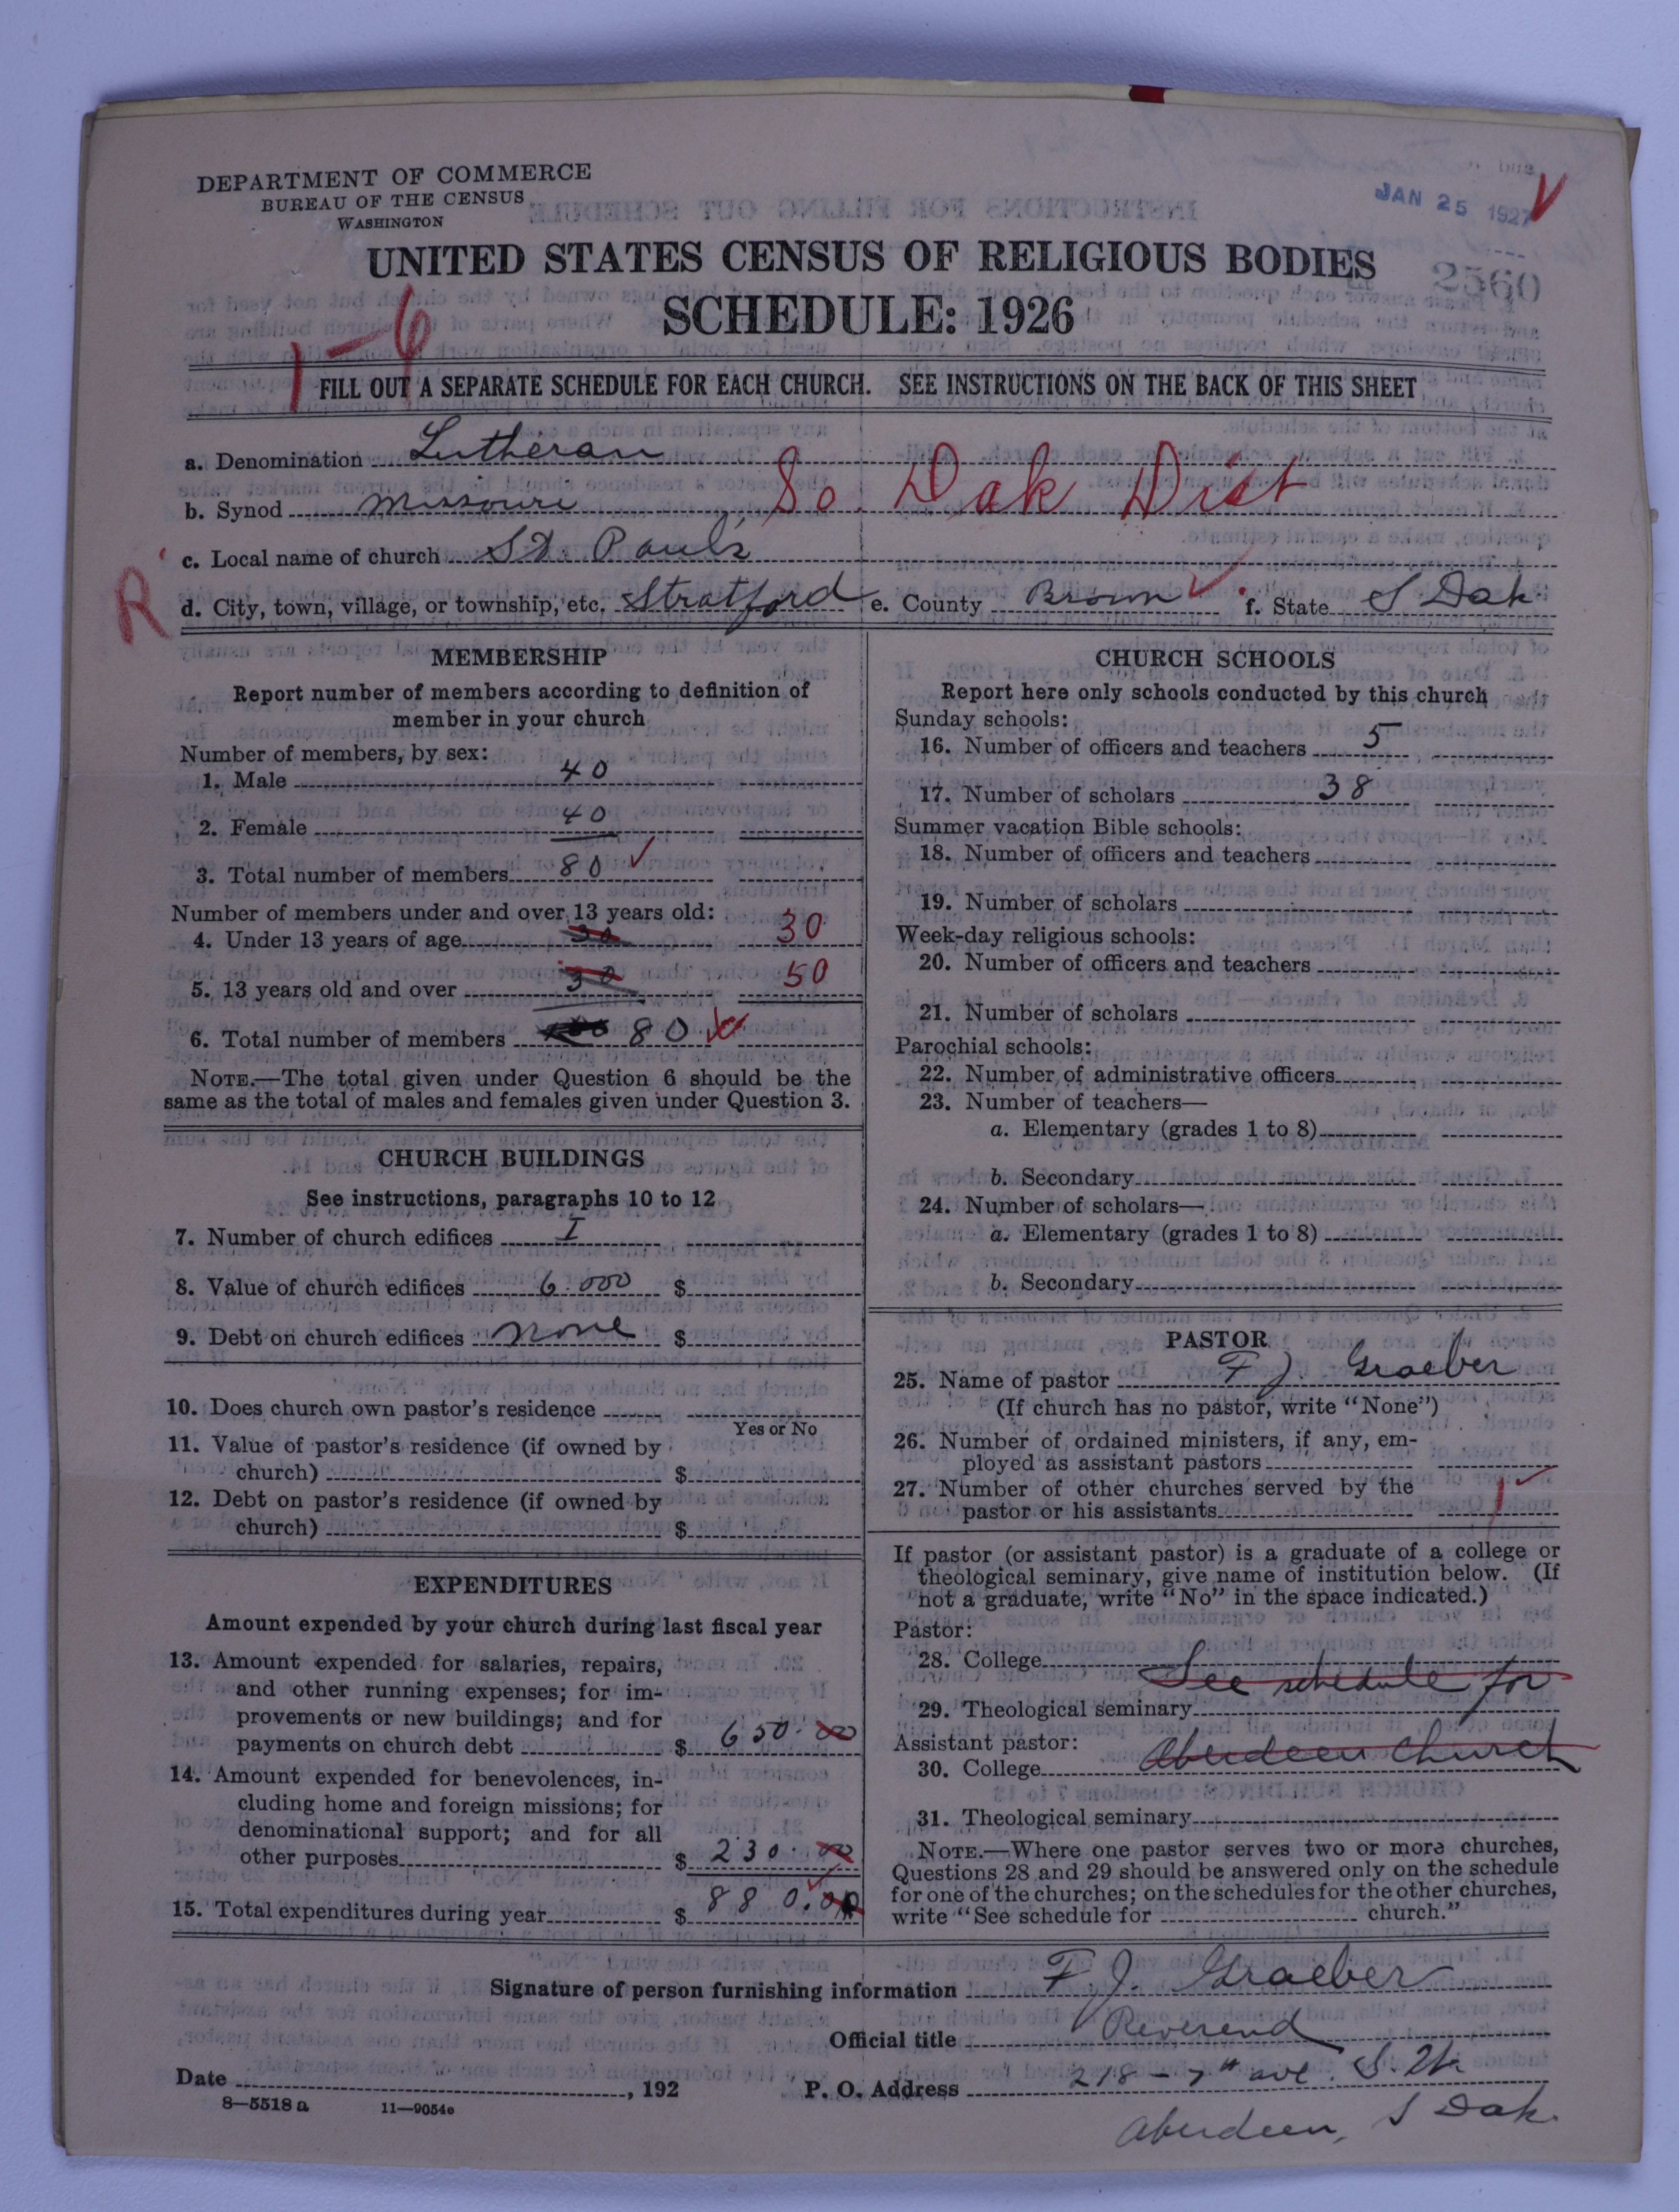 DEPARTMENT OF COMMERCE
BUREAU OF THE CENSUS
WASHINGTON
JAN 25 1927
UNITED STATES CENSUS OF RELIGIOUS BODIES
2560
SCHEDULE: 1926
1-6
FILL OUT A SEPARATE SCHEDULE FOR EACH CHURCH. SEE INSTRUCTIONS ON THE BACK OF THIS SHEET
a. Denomination Lutheran
b. Synod Missouri So. Dak Dist
c. Local name of church St. Pauls
R
d. City, town, village, or township, etc. Stratford e. County Brown f. State S Dak.
MEMBERSHIP
Report number of members according to definition of
member in your church
Number of members, by sex:
1. Male 40
2. Female 40
3. Total number of members 80
Number of members under and over 13 years old:
4. Under 13 years of age 30 30
5. 13 years old and over 30 50
6. Total number of members 80
NOTE.—The total given under Question 6 should be the
same as the total of males and females given under Question 3.
CHURCH BUILDINGS
See instructions, paragraphs 10 to 12
7. Number of church edifices I
8. Value of church edifices 6.000 $
9. Debt on church edifices none $
10. Does church own pastor's residence
Yes or No
11. Value of pastor's residence (if owned by
church) $
12. Debt on pastor's residence (if owned by
church) $
EXPENDITURES
Amount expended by your church during last fiscal year
13. Amount expended for salaries, repairs,
and other running expenses; for im-
provements or new buildings; and for
payments on church debt $ 650.00
14. Amount expended for benevolences, in-
cluding home and foreign missions; for
denominational support; and for all
other purposes $ 230.00
15. Total expenditures during year $ 880.00
CHURCH SCHOOLS
Report here only schools conducted by this church
Sunday schools:
16. Number of officers and teachers 5
17. Number of scholars 38
Summer vacation Bible schools:
18. Number of officers and teachers
19. Number of scholars
Week-day religious schools:
20. Number of officers and teachers
21. Number of scholars
Parochial schools:
22. Number of administrative officers
23. Number of teachers—
a. Elementary (grades 1 to 8)
b. Secondary
24. Number of scholars—
a. Elementary (grades 1 to 8)
b. Secondary
PASTOR
25. Name of pastor F J. Graeber
(If church has no pastor, write "None")
26. Number of ordained ministers, if any, em-
ployed as assistant pastors
27. Number of other churches served by the
pastor or his assistants 1
If pastor (or assistant pastor) is a graduate of a college or
theological seminary, give name of institution below. (If
not a graduate, write "No" in the space indicated.)
Pastor:
28. College
See schedule for
29. Theological seminary
Assistant pastor:
30. College Aberdeen church
31. Theological seminary
NOTE.—Where one pastor serves two or more churches,
Questions 28 and 29 should be answered only on the schedule
for one of the churches; on the schedules for the other churches,
write "See schedule for church."
Signature of person furnishing information F. J. Graeber
Official title Reverend
Date , 192 P. O. Address 218 - 7th ave. S. W.
8—5518 a 11—9054e
Aberdeen, S Dak.